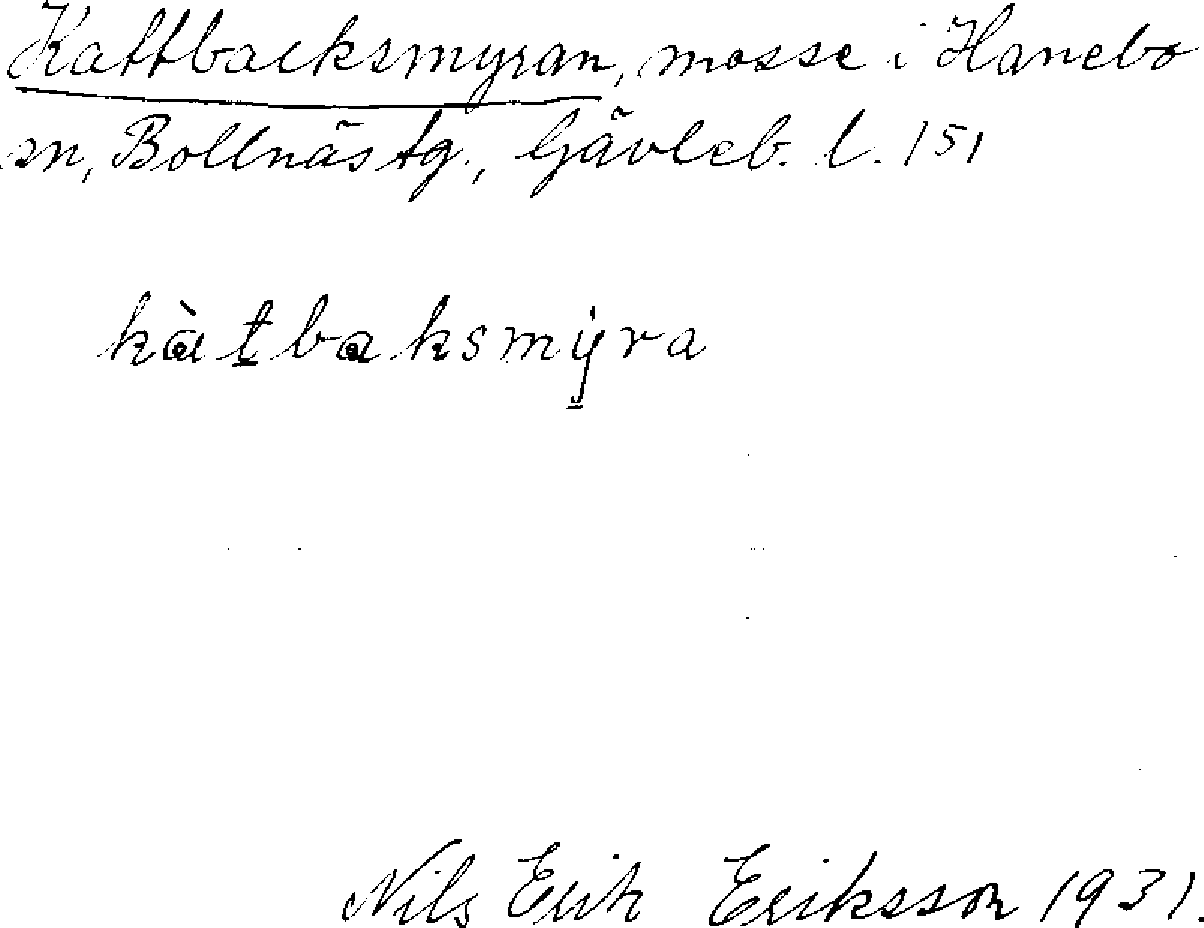 Kattbacksmyran, mosse i Hanebo
sn, Bollnäs tg., Gävleb. l. 151
kàt̲baksmy̲ra
Nils Erik Eriksson 1931.